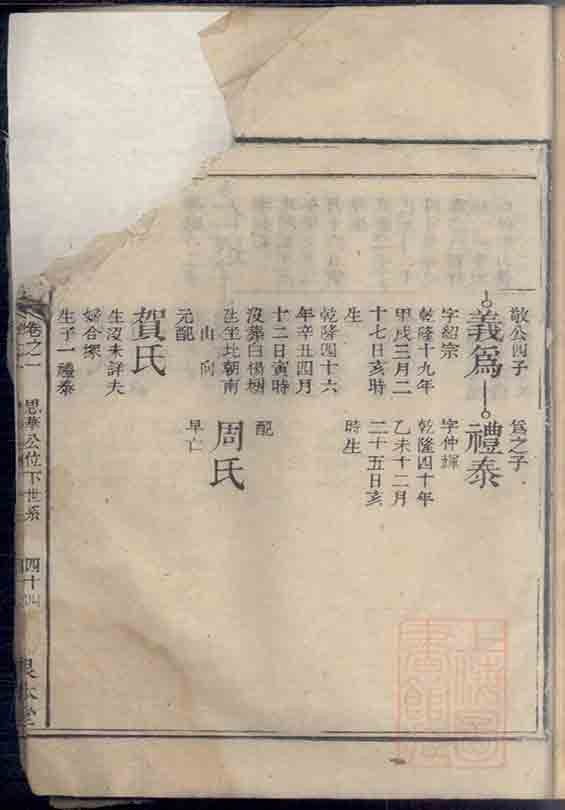 敬公四子
義爲
字紹宗
乾隆十九年
甲戌三月二
十七日亥時
生
乾隆四十六
年辛丑四月
十二日寅時
沒葬白楊
坐北朝南
山向
元配
賀氏
生沒未詳夫
婦合塚
生子一禮泰
爲之子
禮泰
字仲輝
乾隆四十年
乙未十二月
二十五日亥
時生
配
周氏
早亡
卷之一
思華公位下世系
四十四
根本堂
上海圖
書館藏